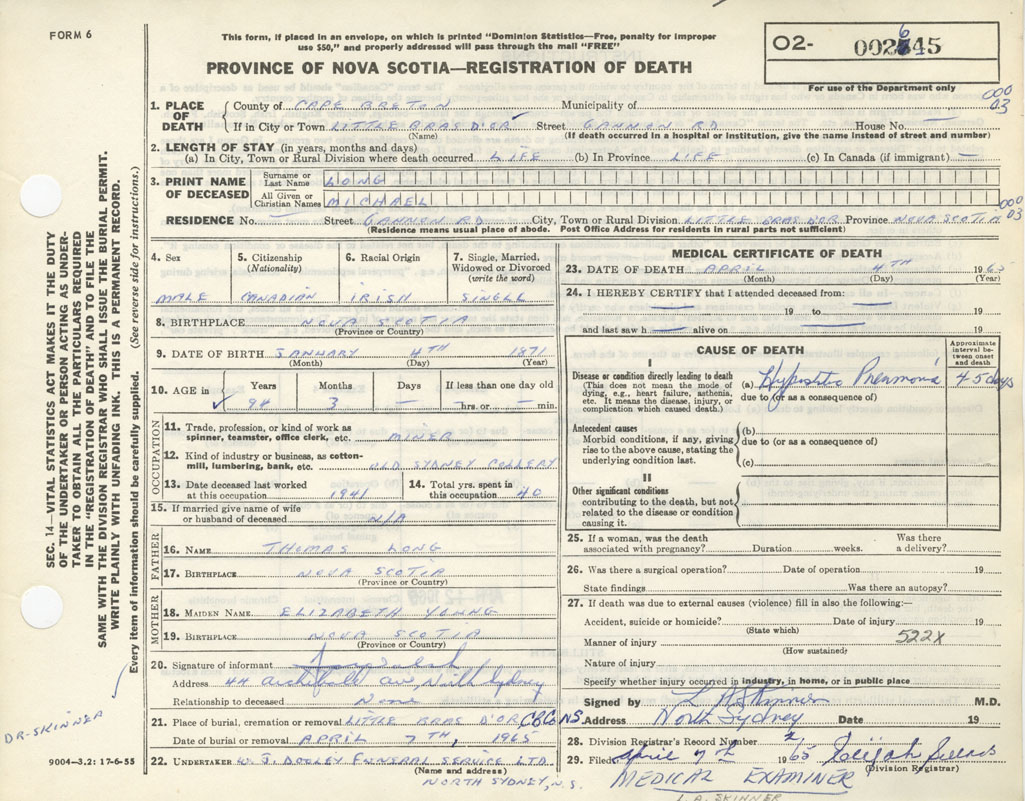 FORM 6
This form, if placed in an envelope, on which is printed "Dominion Statistics—Free, penalty for improper
use $50," and properly addressed will pass through the mail "FREE"
PROVINCE OF NOVA SCOTIA—REGISTRATION OF DEATH
02-
For use of the Department only
000
03
1. PLACE OF DEATH
County of CAPE BRETON Municipality of
If in City or Town LITTLE BRAS D'OR Street GANNON RD House No. —
(Name) (If death occurred in a hospital or institution, give the name instead of street and number)
2. LENGTH OF STAY (in years, months and days)
(a) In City, Town or Rural Division where death occurred LIFE (b) In Province LIFE (c) In Canada (if immigrant) —
3. PRINT NAME OF DECEASED
Surname or Last Name LONG
All Given or Christian Names MICHAEL
000
03
RESIDENCE No. Street GANNON RD City, Town or Rural Division LITTLE BRAS D'OR Province NOVA SCOTIA
(Residence means usual place of abode. Post Office Address for residents in rural parts not sufficient)
4. Sex
MALE
5. Citizenship
(Nationality)
CANADIAN
6. Racial Origin
IRISH
7. Single, Married,
Widowed or Divorced
(write the word)
SINGLE
8. BIRTHPLACE NOVA SCOTIA
(Province or Country)
9. DATE OF BIRTH JANUARY 4TH 1871
(Month) (Day) (Year)
10. AGE in Years Months Days If less than one day old
94 3 — — hrs. or — min.
OCCUPATION
11. Trade, profession, or kind of work as
spinner, teamster, office clerk, etc. MINER
12. Kind of industry or business, as cotton-
mill, lumbering, bank, etc. OLD SYDNEY COLLERY
13. Date deceased last worked
at this occupation 1941
14. Total yrs. spent in
this occupation 40
15. If married give name of wife
or husband of deceased N/A
FATHER
16. NAME THOMAS LONG
17. BIRTHPLACE NOVA SCOTIA
(Province or Country)
MOTHER
18. MAIDEN NAME ELIZABETH YOUNG
19. BIRTHPLACE NOVA SCOTIA
(Province or Country)
20. Signature of informant
Address 44 Archibald Ave, North Sydney
Relationship to deceased None
21. Place of burial, cremation or removal LITTLE BRAS D'OR, CB Co NS.
Date of burial or removal APRIL 7TH, 1965
22. UNDERTAKER W. J. DOOLEY FUNERAL SERVICE LTD.
(Name and address)
NORTH SYDNEY, N.S.
MEDICAL CERTIFICATE OF DEATH
23. DATE OF DEATH APRIL 4TH 1965
(Month) (Day) (Year)
24. I HEREBY CERTIFY that I attended deceased from:
— 19 to —
and last saw h — alive on — 19
CAUSE OF DEATH
Approximate interval between onset and death
I
Disease or condition directly leading to death
(This does not mean the mode of
dying, e.g., heart failure, asthenia,
etc. It means the disease, injury, or
complication which caused death.)
(a) Hypostatic Pneumonia 4-5 days
due to (or as a consequence of)
Antecedent causes
Morbid conditions, if any, giving
rise to the above cause, stating the
underlying condition last.
(b)
due to (or as a consequence of)
(c)
II
Other significant conditions
contributing to the death, but not
related to the disease or condition
causing it.
25. If a woman, was the death
associated with pregnancy? Duration weeks. Was there
a delivery?
26. Was there a surgical operation? Date of operation 19
State findings Was there an autopsy?
27. If death was due to external causes (violence) fill in also the following:—
Accident, suicide or homicide? Date of injury 19
(State which)
522X
Manner of injury
(How sustained)
Nature of injury
Specify whether injury occurred in industry, in home, or in public place
Signed by L A Skinner M.D.
Address North Sydney Date 19
28. Division Registrar's Record Number
29. Filed April 7th 1965
(Division Registrar)
MEDICAL EXAMINER
L.A. SKINNER
SEC. 14—VITAL STATISTICS ACT MAKES IT THE DUTY
OF THE UNDERTAKER OR PERSON ACTING AS UNDER-
TAKER TO OBTAIN ALL THE PARTICULARS REQUIRED
IN THE "REGISTRATION OF DEATH" AND TO FILE THE
SAME WITH THE DIVISION REGISTRAR WHO SHALL ISSUE THE BURIAL PERMIT.
WRITE PLAINLY WITH UNFADING INK. THIS IS A PERMANENT RECORD.
Every item of information should be carefully supplied. (See reverse side for instructions.)
DR-SKINNER
9004—3,2: 17-6-55